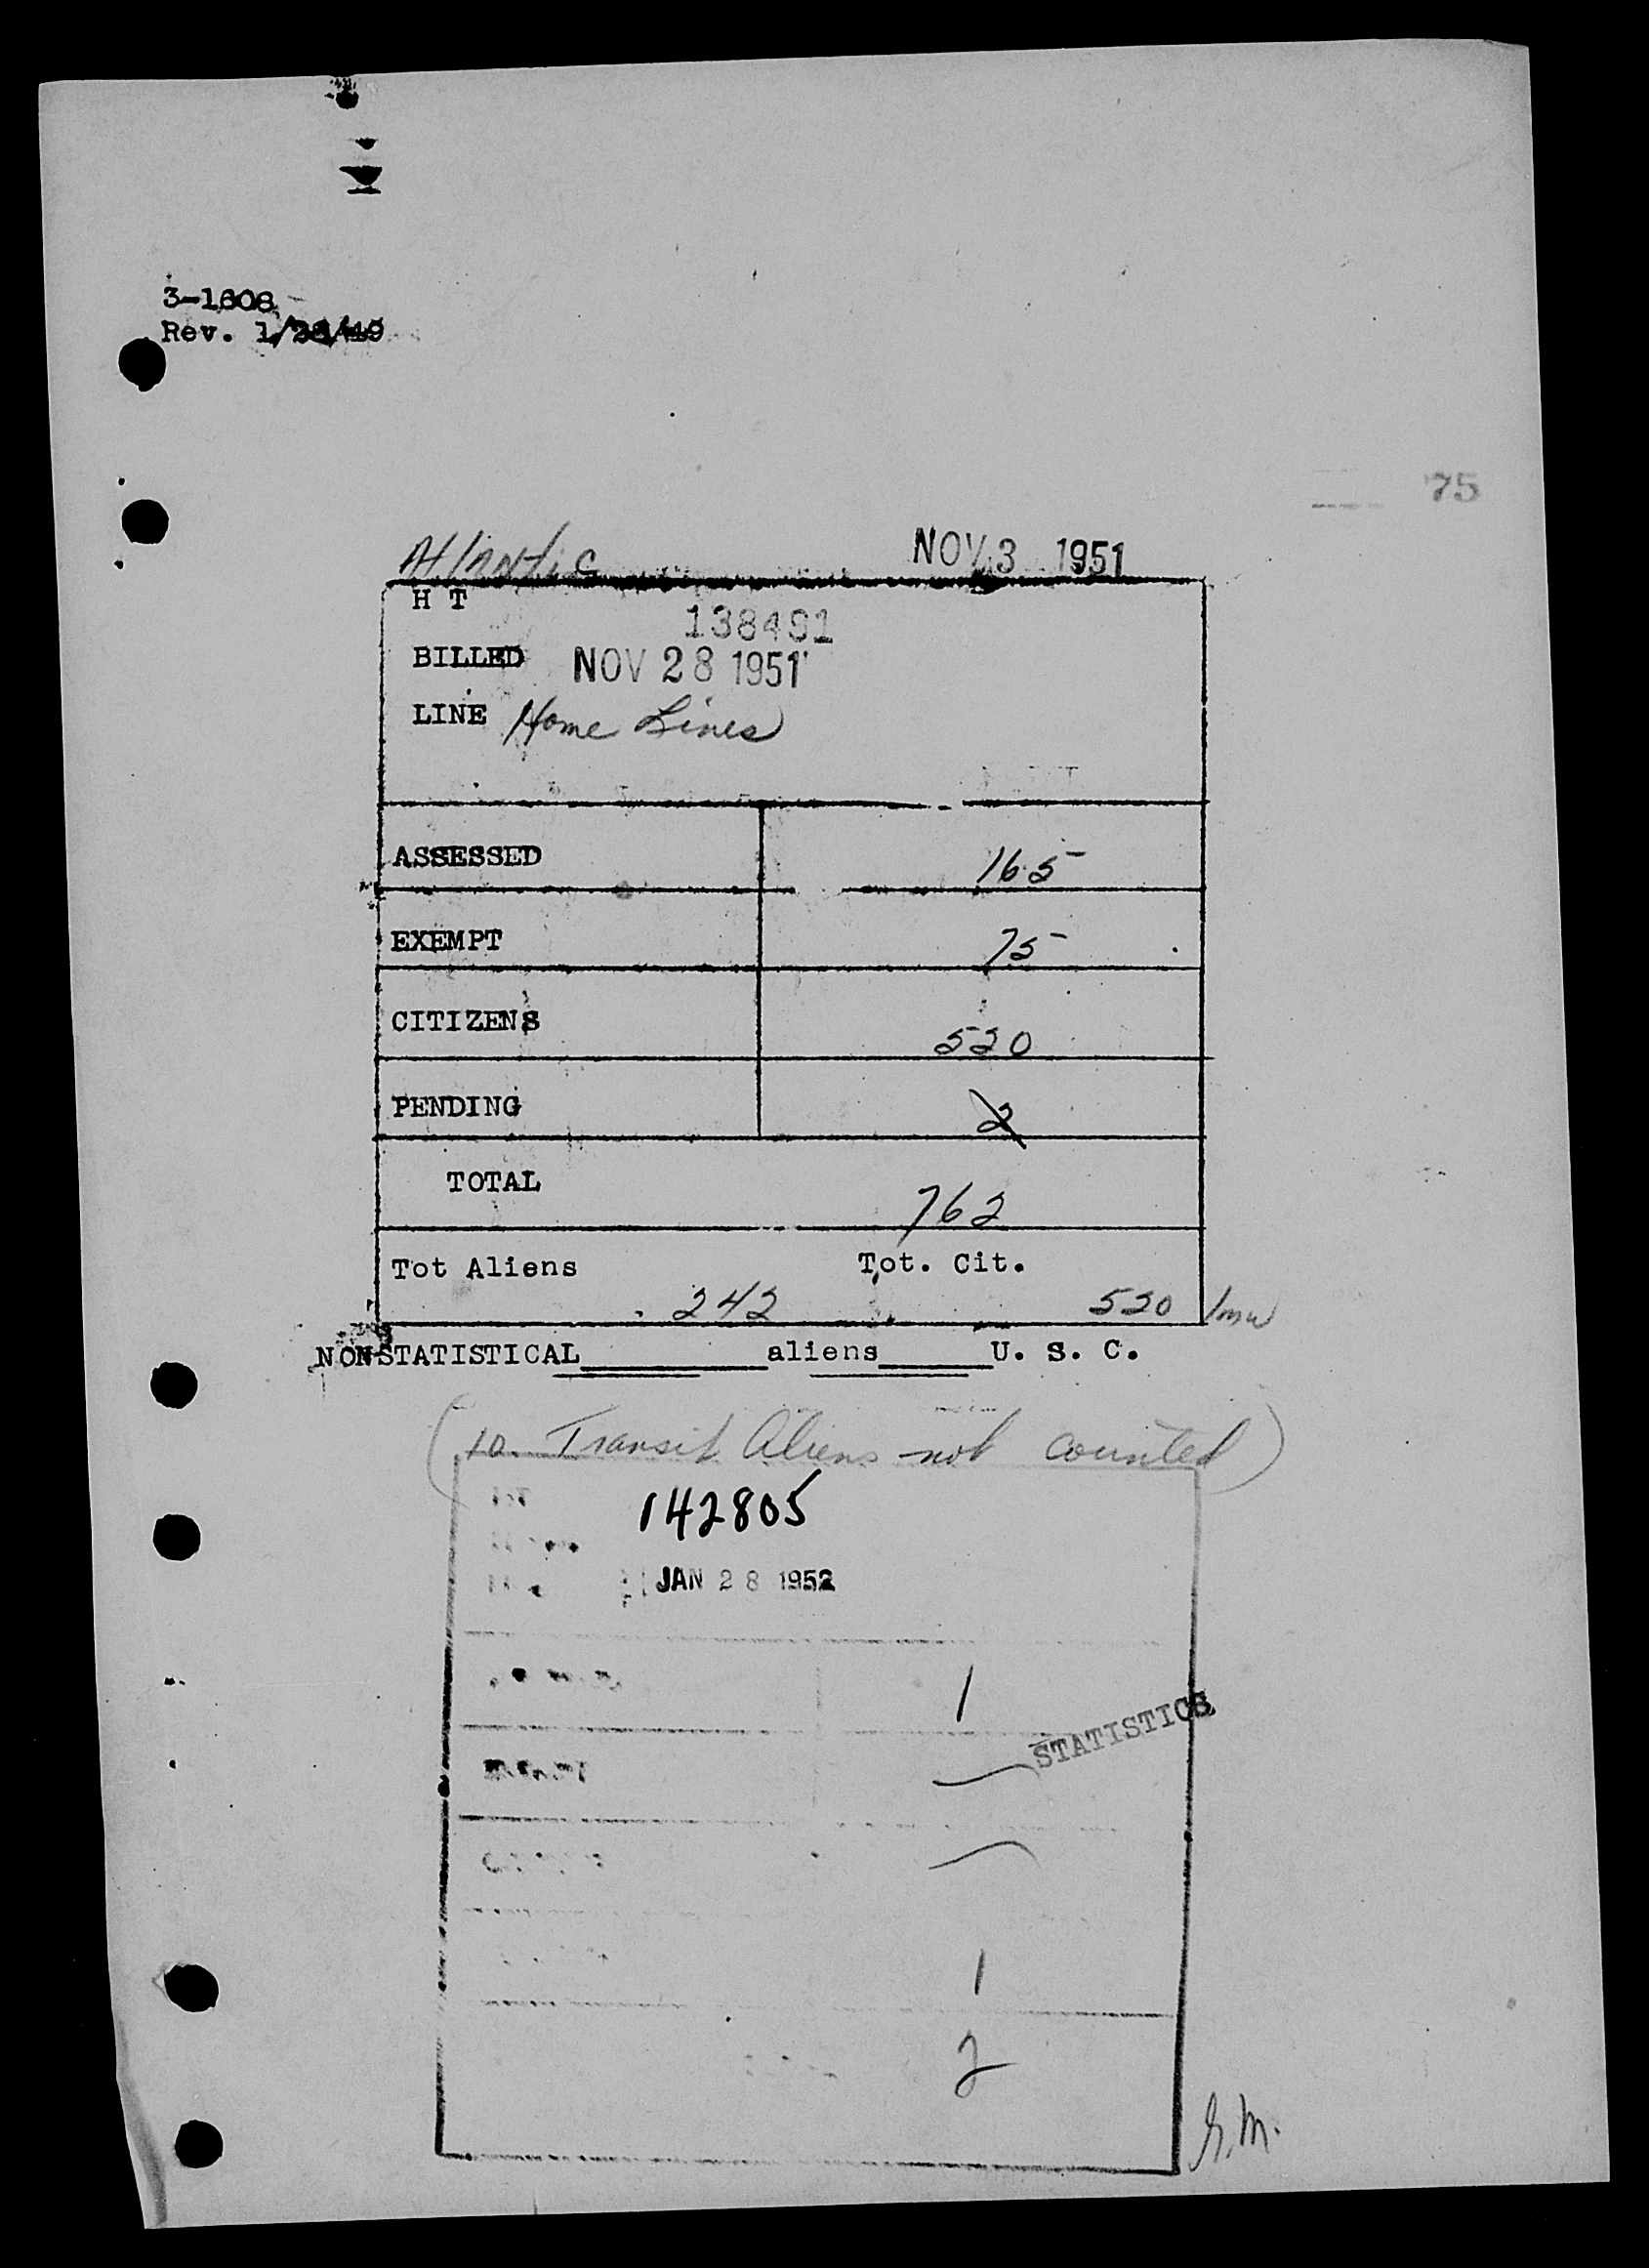 3-1608
Rev. 1/28/49
75
Atlantic NOV 3 1951
H T
138491
BILLED NOV 28 1951
LINE Home Lines
ASSESSED 165
EXEMPT 75
CITIZENS 520
PENDING 2
TOTAL 762
Tot Aliens Tot. Cit.
242 520 lmw
NON-STATISTICAL aliens U. S. C.
(10 Transit Aliens not counted)
142805
JAN 28 1952
1
STATISTICS
1
2